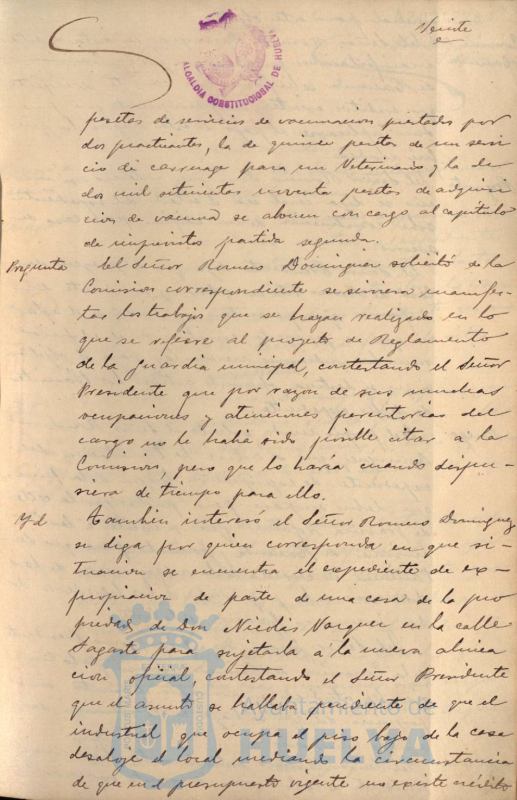 Veinte
ALCALDIA CONSTITUCIONAL DE HUELVA
pesetas de servicios de vacunacion prestados por
dos practicantes, la de quince pesetas de un servi
cio de carruage para un Veterinario y la de
dos mil setenta noventa pesetas de adquisi
ciones de vacuna se abonen con cargo al capitulo
de imprevistos partida segunda.
Pregunta El Señor Romero Dominguez solicitó de la
Comision correspondiente se sirviera manifes-
tar los trabajos que se hayan realizado en lo
que se refiere al proyecto de Reglamento
de la guardia municipal, contestando el Señor
Presidente que por razon de sus muchas
ocupaciones y atenciones perentorias del
cargo no le habia sido posible citar á la
Comision, pero que lo haria cuando dispu-
siera de tiempo para ello.
Yd. Tambien interesó el Señor Romero Dominguez
se diga por quien corresponda en que si-
tuacion se encuentra el expediente de ex-
propiacion de parte de una casa de la pro
piedad de Don Nicolás Vazquez en la calle
Sagasta para sujetarla á la nueva alinea
cion oficial, contestando el Señor Presidente
que el asunto se hallaba pendiente de que el
industrial que ocupa el piso bajo de la casa
desaloje el local mediando la circunstancia
de que en el presupuesto vigente no existe crédito
Ayuntamiento de
HUELVA